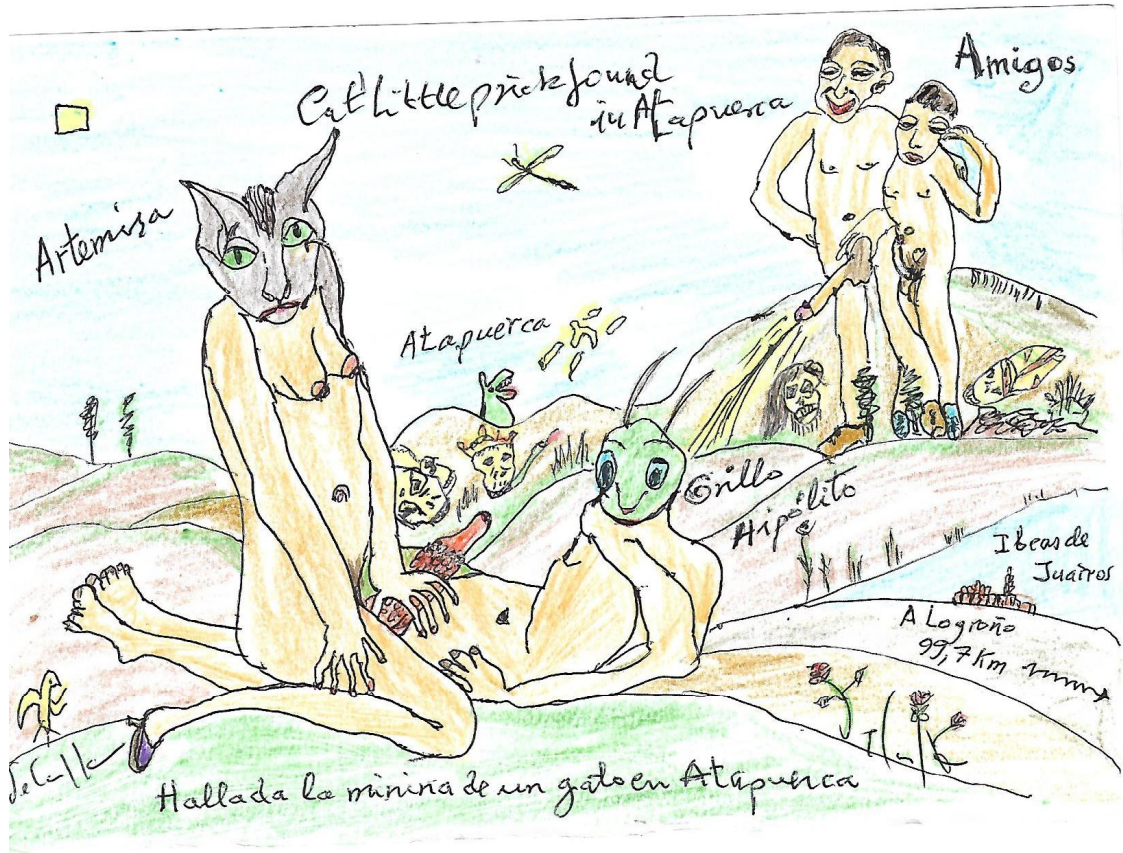 Amigos
Cat Little prick found
in Atapuerca
Artemisa
Atapuerca
Grillo
Hipólito
Ibeas de
Juarros
A Logroño
99,7 Km
Hallada la minina de un gato en Atapuerca